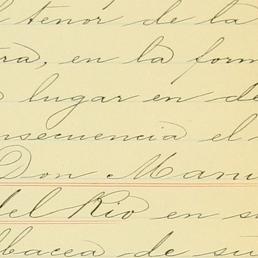 l tenor de la
ra, en la form
lugar en de
nsecuencia el
Don Manu
del Rio en su
lbacea de su